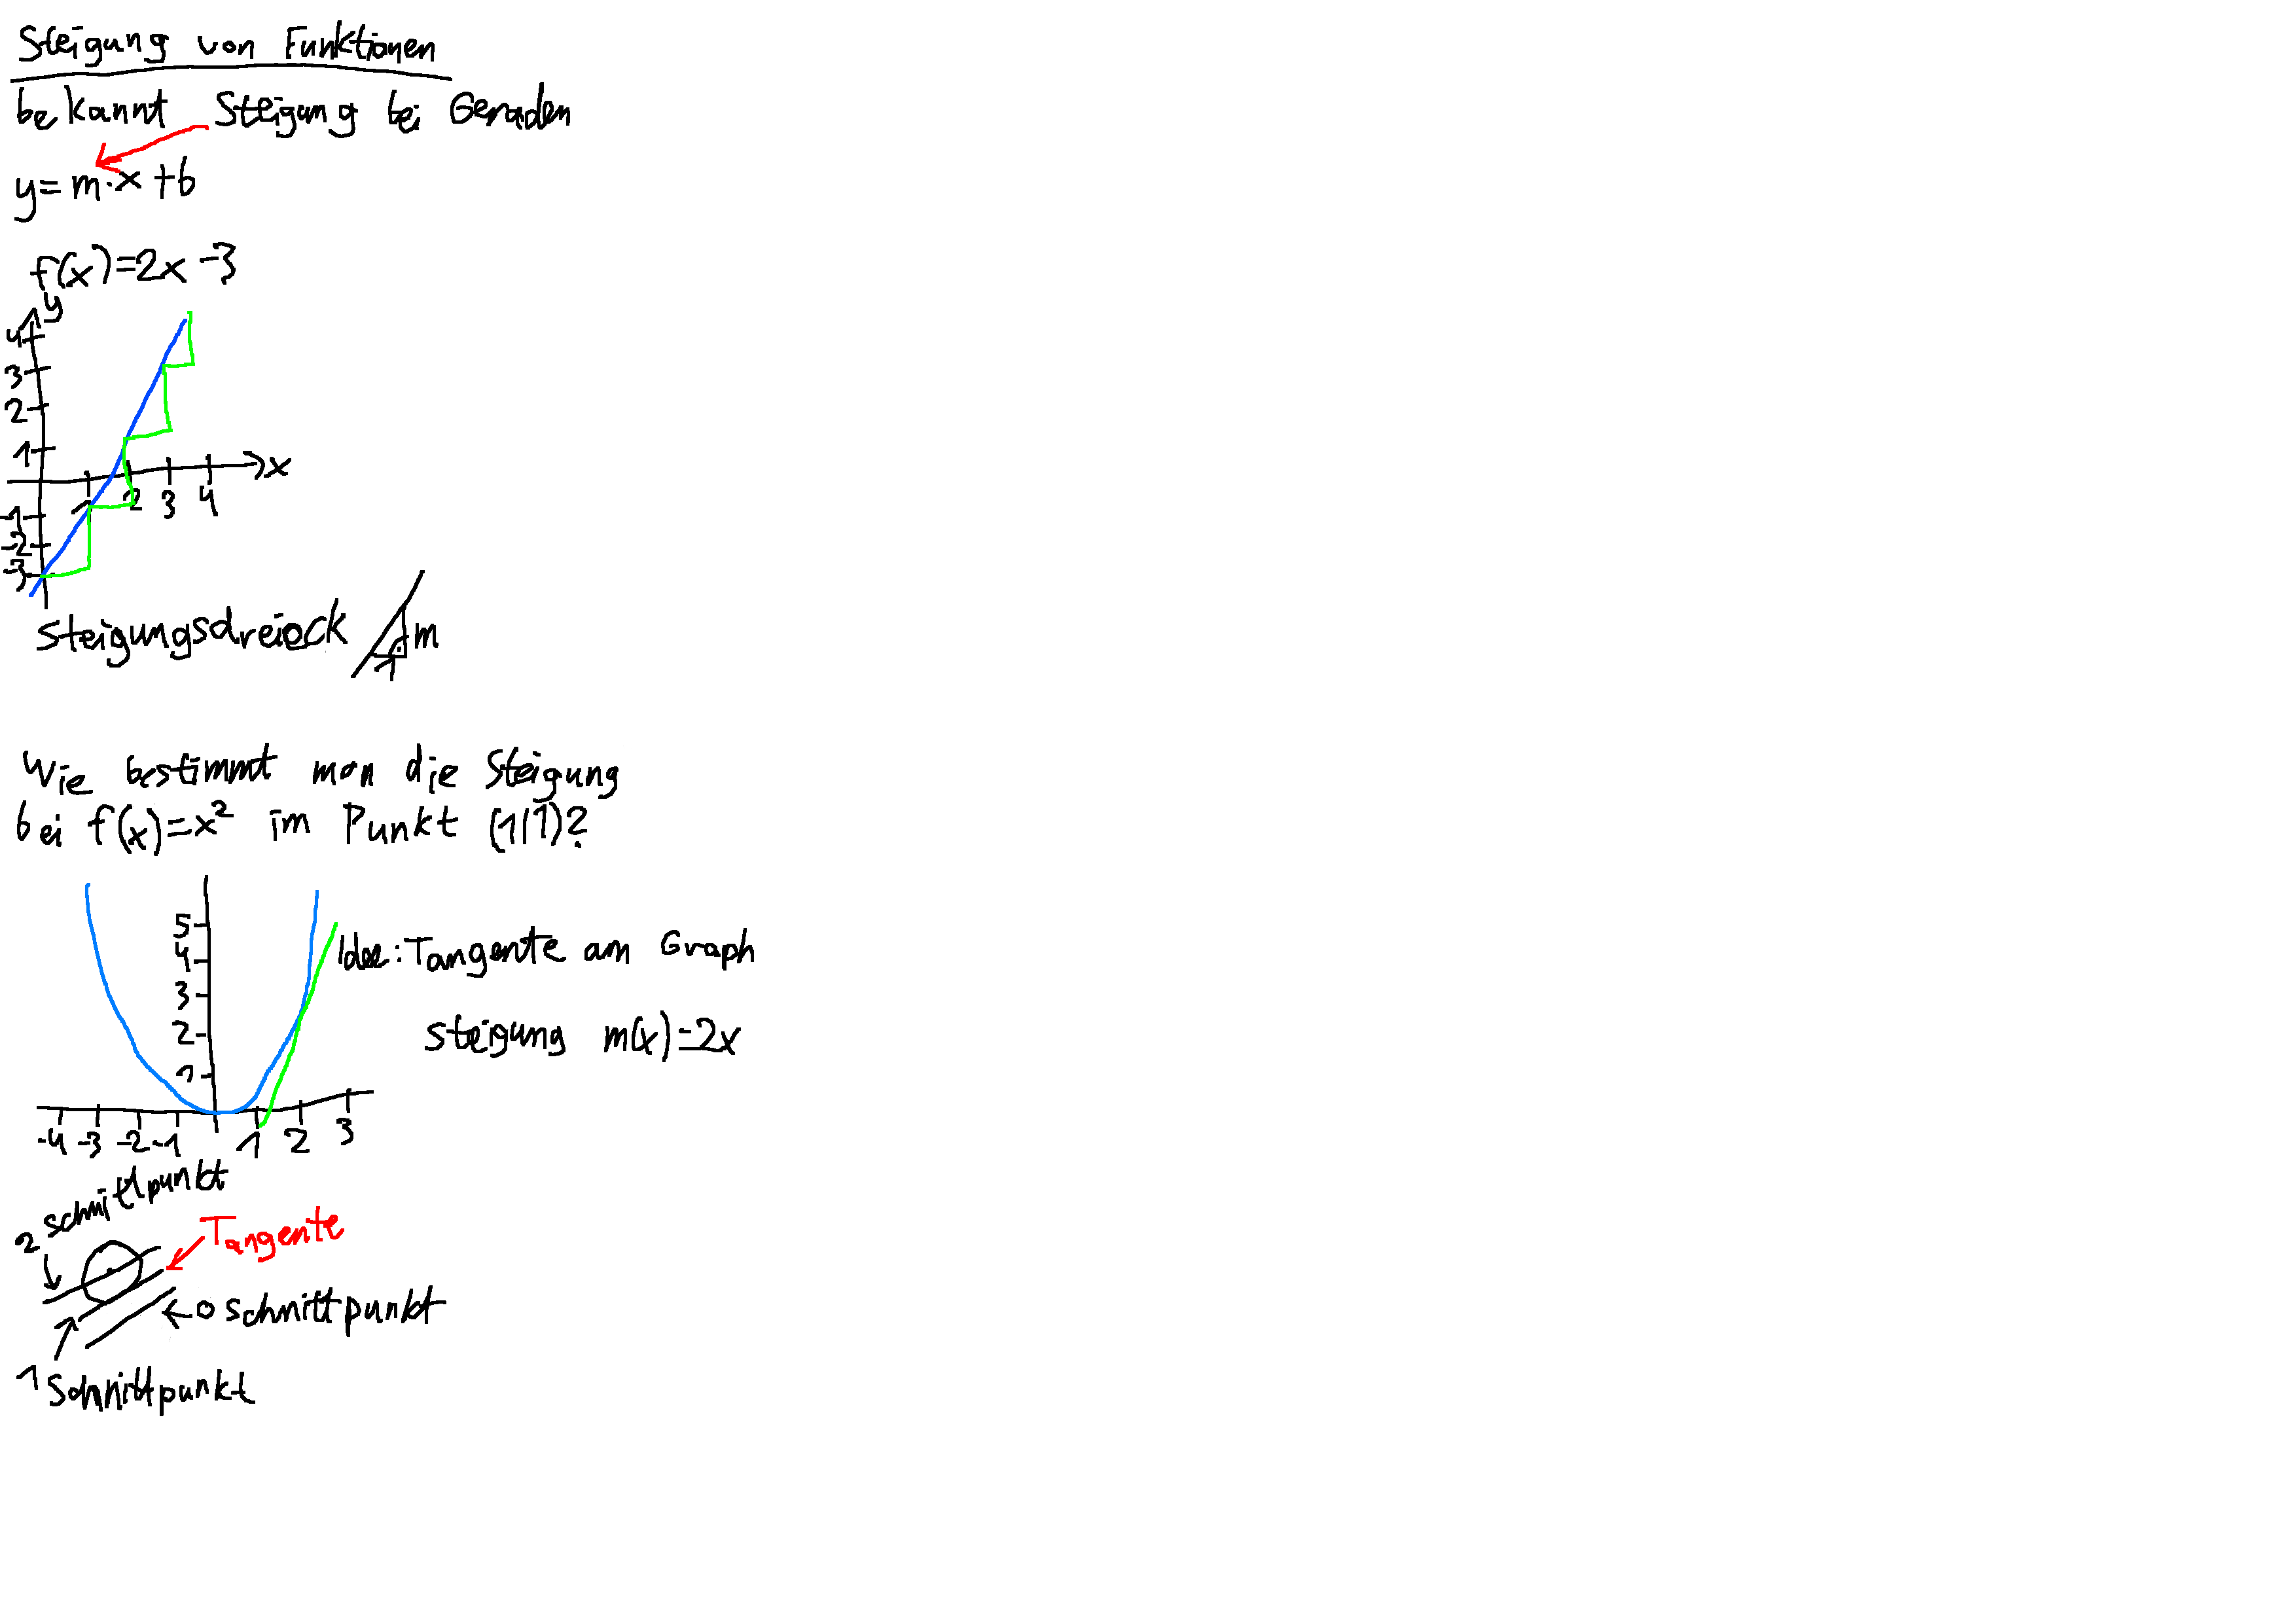 Steigung von Funktionen
bekannt Steigung bei Geraden
y=m·x+b
f(x)=2x-3
y
4
3
2
1
x
1 2 3 4
-1
-2
-3
Steigungsdreieck
m
1
Wie bestimmt man die Steigung
bei f(x)=x² im Punkt (1|1)?
5
4
3
2
1
-4 -3 -2 -1 1 2 3
Idee: Tangente am Graph
Steigung m(x)=2x
2 Schnittpunkt
Tangente
0 Schnittpunkt
1 Schnittpunkt